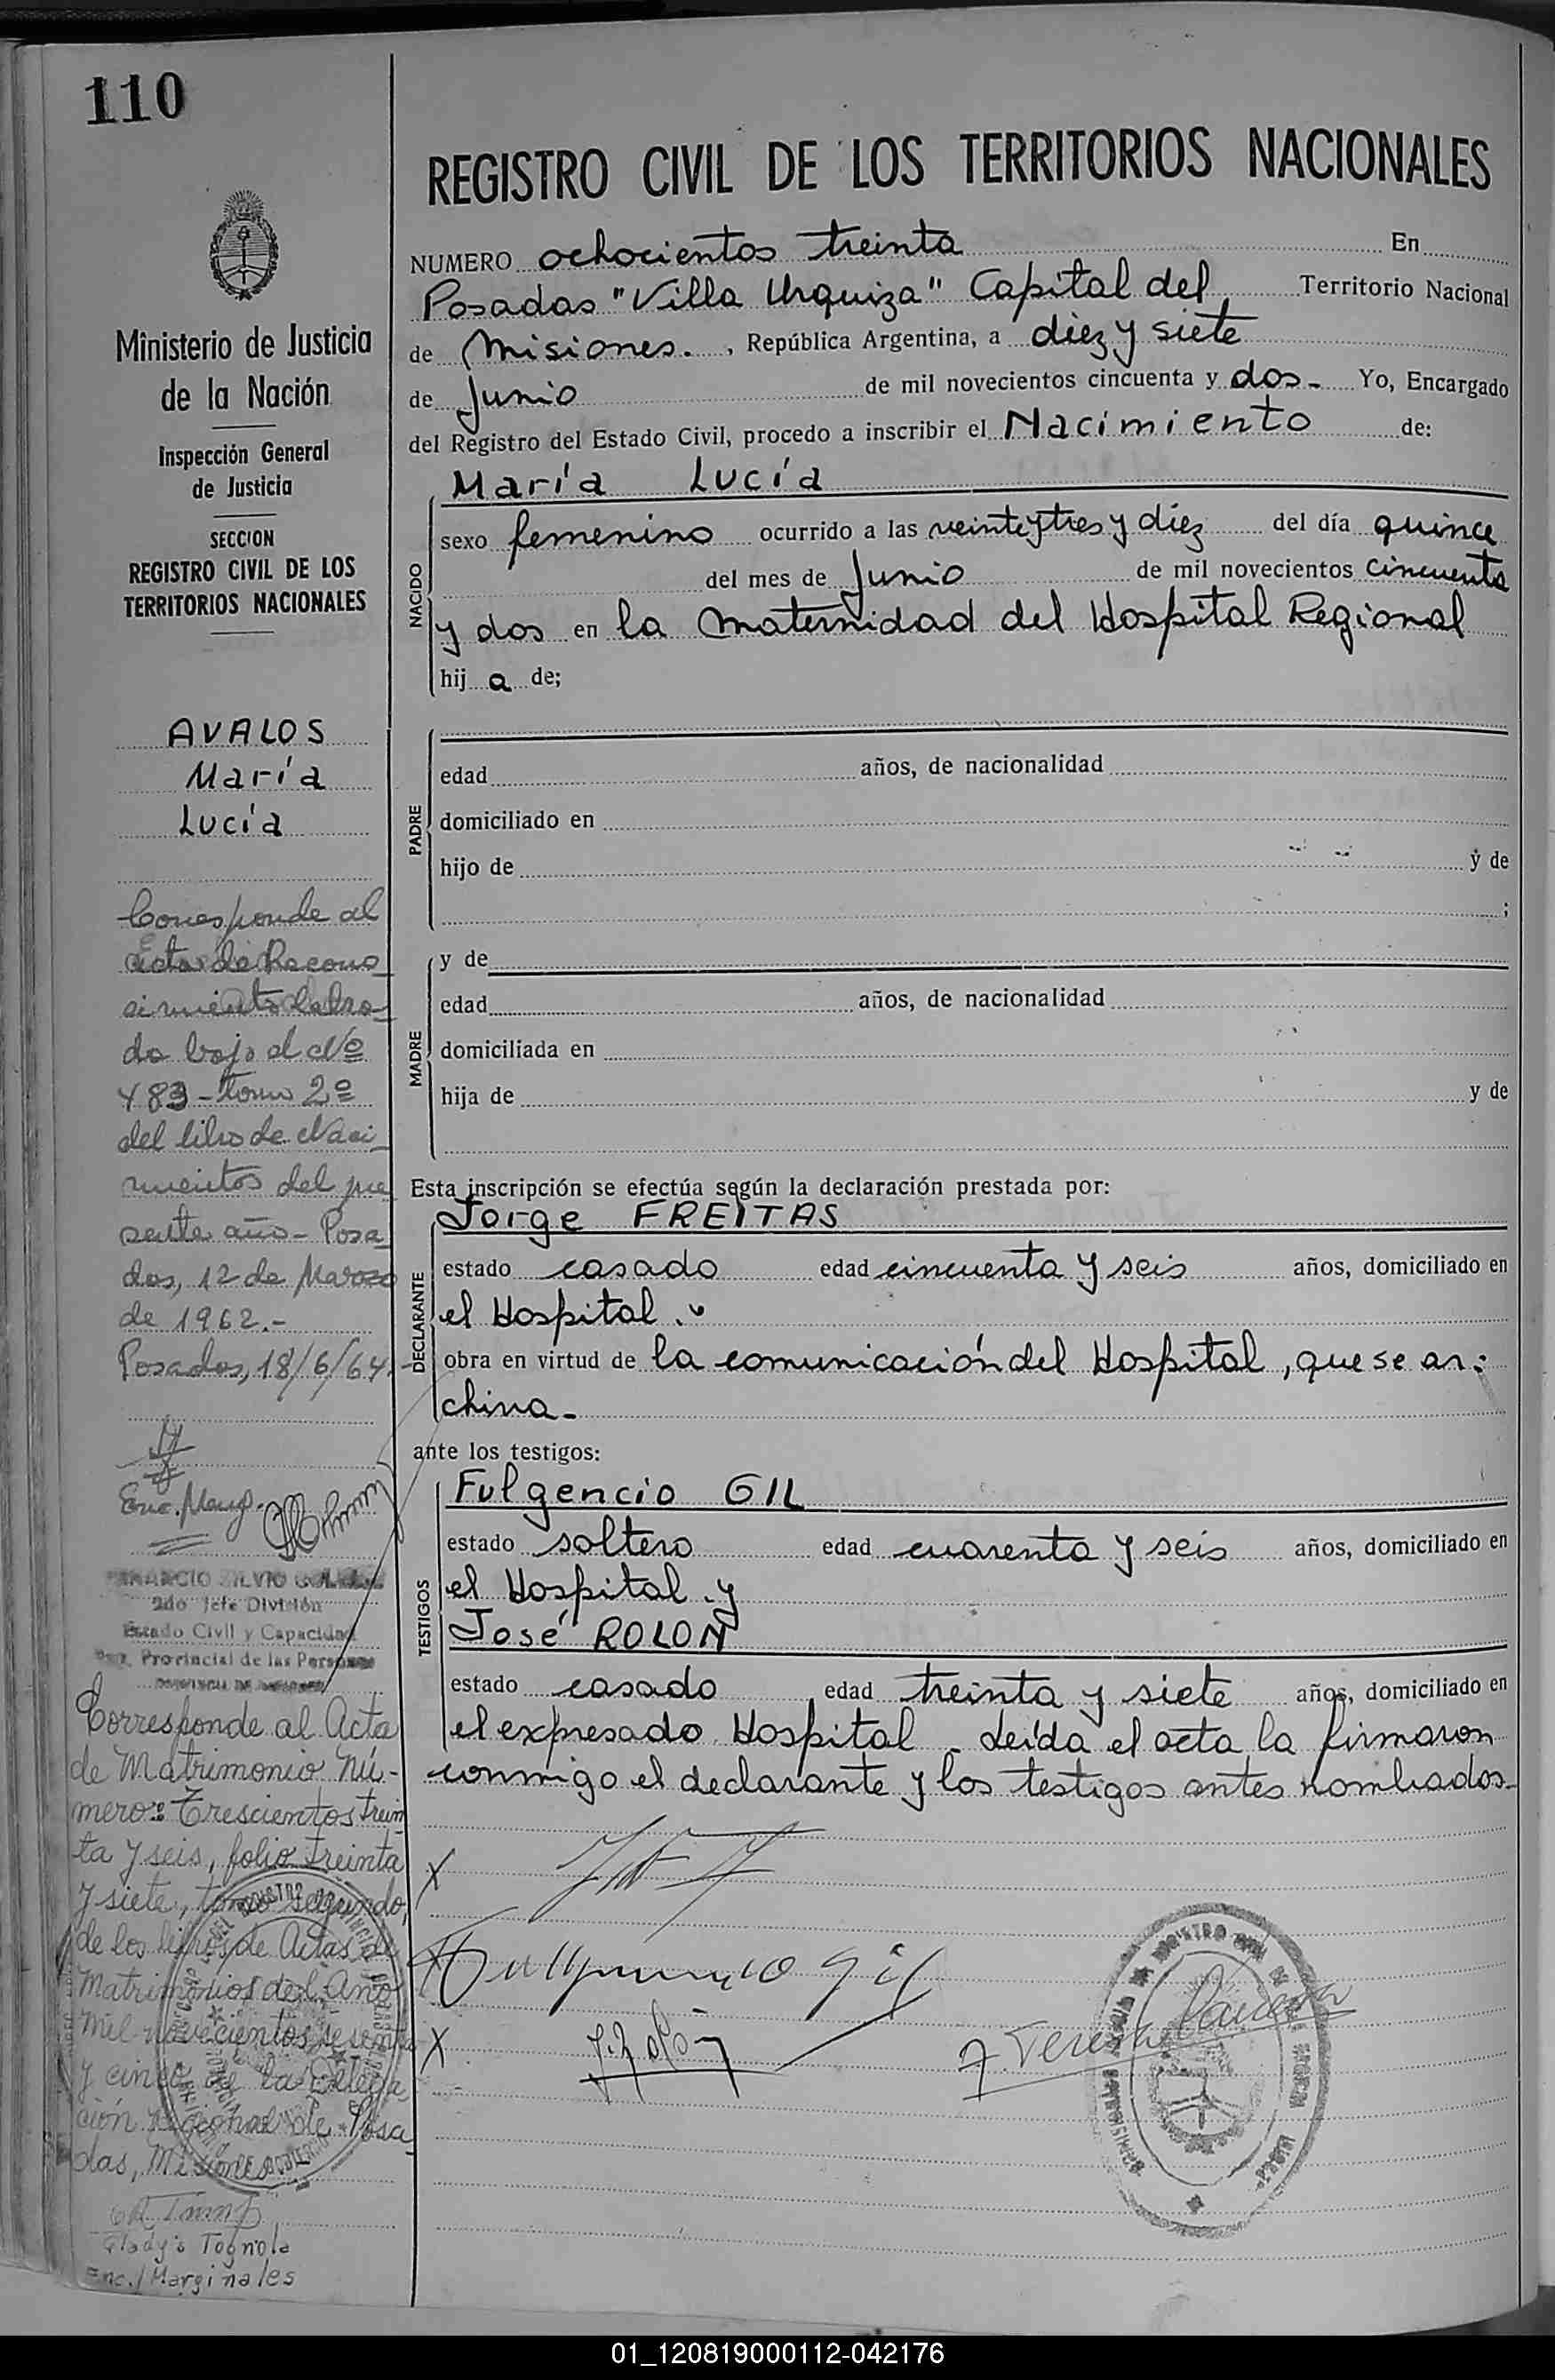 110
REGISTRO CIVIL DE LOS TERRITORIOS NACIONALES
Ministerio de Justicia
de la Nación
Inspección General
de Justicia
SECCION
REGISTRO CIVIL DE LOS
TERRITORIOS NACIONALES
AVALOS
María
Lucía
Corresponde al
Acta de Recono
cimiento labra-
do bajo el Nº
483 - tomo 2º
del libro de Naci
mientos del pre
sente año - Posa
das, 12 de Marzo
de 1962.-
Posadas, 18/6/64.
Enc. Marg.
2do Jefe División
Estado Civil y Capacidad
Provincial de las Personas
Corresponde al Acta
de Matrimonio Nú-
mero: Trescientos trein
ta y seis, folio treinta
y siete, tomo segundo,
de los libros de Actas de
Matrimonios del Año
mil novecientos sesenta
y cinco de la Delega
ción Regional de Posa
das, Misiones
Gladys Tognola
Enc./Marginales
NUMERO ochocientos treinta En
Posadas "Villa Urquiza" Capital del Territorio Nacional
de Misiones. , República Argentina, a diez y siete
de Junio de mil novecientos cincuenta y dos- Yo, Encargado
del Registro del Estado Civil, procedo a inscribir el Nacimiento de:
María Lucía
NACIDO
sexo femenino ocurrido a las veinte y tres y diez del día quince
del mes de Junio de mil novecientos cincuenta
y dos en la Maternidad del Hospital Regional
hij a de;
PADRE
edad años, de nacionalidad
domiciliado en
hijo de y de
;
MADRE
y de
edad años, de nacionalidad
domiciliada en
hija de y de
Esta inscripción se efectúa según la declaración prestada por:
DECLARANTE
Jorge FREITAS
estado casado edad cincuenta y seis años, domiciliado en
el Hospital.
obra en virtud de la comunicación del Hospital, que se ar-
chiva-
ante los testigos:
TESTIGOS
Fulgencio GIL
estado soltero edad cuarenta y seis años, domiciliado en
el Hospital y
José ROLON
estado casado edad treinta y siete años, domiciliado en
el expresado Hospital - Leída el acta la firmaron
conmigo el declarante y los testigos antes nombrados-
X
X
Fulgencio Gil
X
J. Rolón
01_120819000112-042176